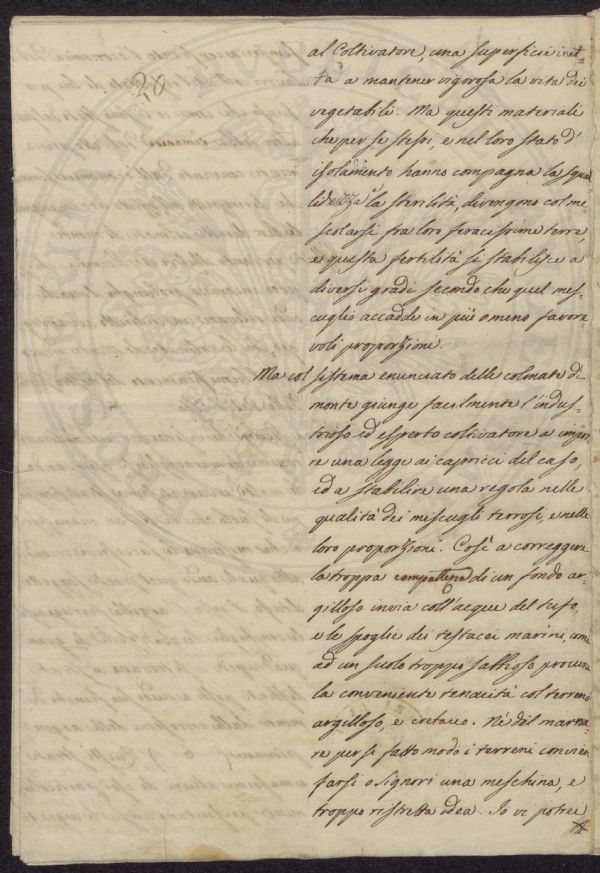 20
al Coltivatore, una superficie inet=
ta a mantener vigorosa la vita dei
vegetabili. Ma questi materiali
che per se stessi, e nel loro stato d'
isolamento hanno compagna la squal
lidezza e la sterilità, divengono col me=
scolarsi fra loro feracissime terre,
e questa fertilità si stabilisce a
diversi gradi secondo che quel mes=
cuglio accadde in più o meno favore=
voli proporzioni.
Ma col sistema enunciato delle colmate di
monte giunge facilmente l'indus=
trioso ed esperto coltivatore a impor
re una legge ai capricci del caso,
ed a stabilire una regola nelle
qualità dei miscugli terrosi, e nelle
loro proporzioni. Così a correggere
la troppa compattezza di un fondo ar=
gilloso invia coll'acque del tufo,
e le spoglie dei testacei marini, come
ad un suolo troppo sabbioso procura
la conveniente tenacità col terreno
argilloso, e cretaceo. Nè del marna=
re per sì fatto modo i terreni convien
farsi o Signori una meschina, e
troppo ristretta idea. Io vi potrei